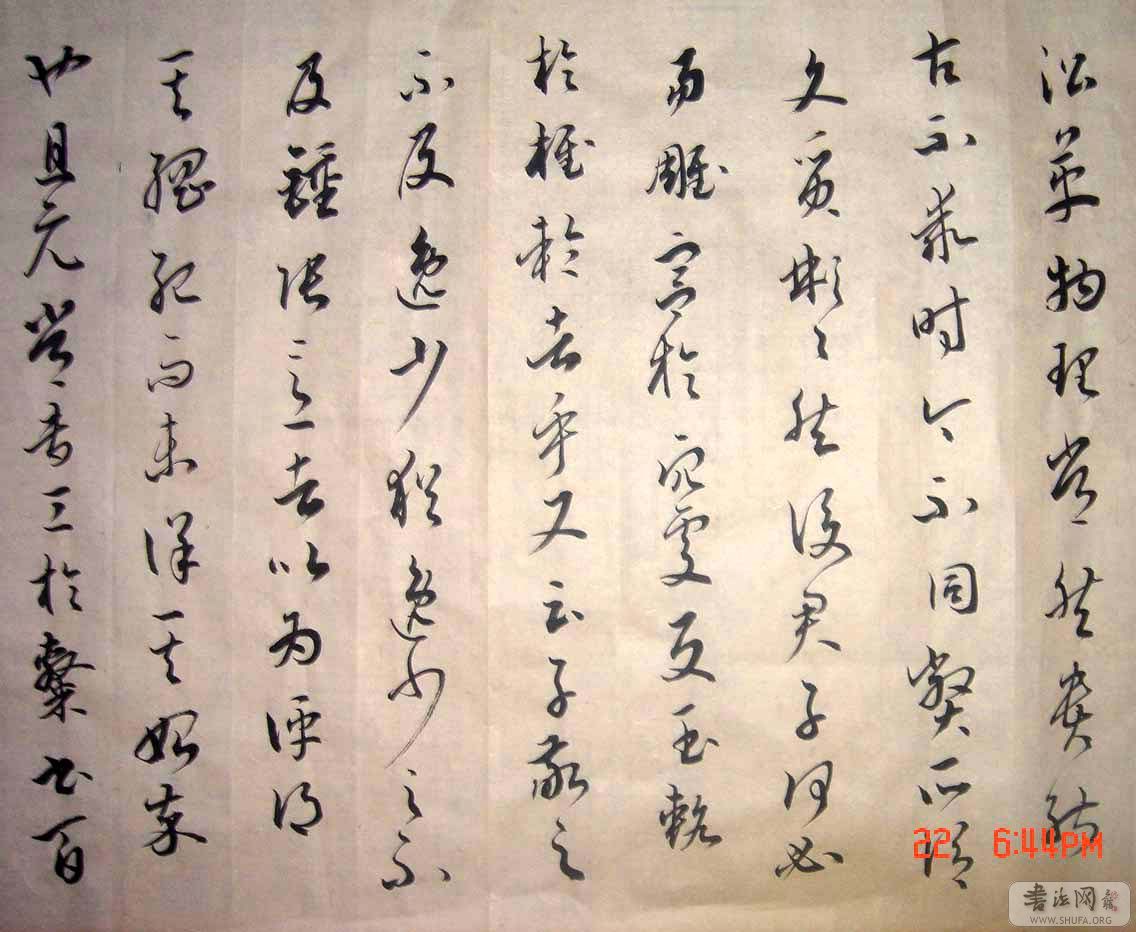 沿革物理常然貴能
古不乖時今不同弊所謂
文質彬々然後君子何必
易雕宮於穴處反玉輅
於椎輪者乎又云子敬之
不及逸少猶逸少之不
及鍾張意者以為評得
其綱紀而未詳其始卒
也且元常專工於隸書百
22 6:44PM
書法网
WWW.SHUFA.ORG